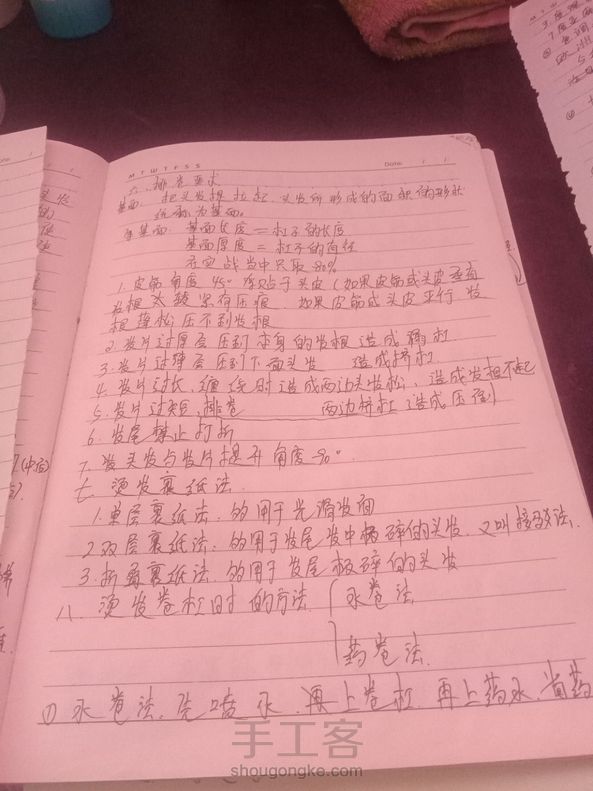 M T W T F S S
Date / /
六、排卷要求
基面: 把头发梳拉起、头发所形成的面积的形状
统称为基面。
基面: 基面长度 = 杠子的长度
基面厚度 = 杠子的直径
在实战当中只取 80%
1. 皮筋角度 45° 于头皮 (如果皮筋或头皮垂直
发根太 紧有压痕 如果皮筋或头皮平行 发
根蓬松压不到发根
2. 发片过厚会压到本身的发根 造成 杠
3. 发片过薄会压到下面头发 造成挤杠
4. 发片过长, 缠绕时造成两边头发松, 造成发根不起
5. 发片过短, 排卷 两边挤杠 造成压到
6. 发尾禁止打折
7. 发头发与发片提升角度 90°
七、烫发裹纸法
1. 单层裹纸法: 的用于光滑发面
2. 双层裹纸法: 的用于发尾发中 碎的头发, 又叫 法.
3. 折叠裹纸法: 的用于发尾极碎的头发
八、烫发卷杠时的方法 { 水卷法
药卷法.
① 水卷法, 先喷水, 再上卷杠, 再上药水 省药
手工客
shougongke.com